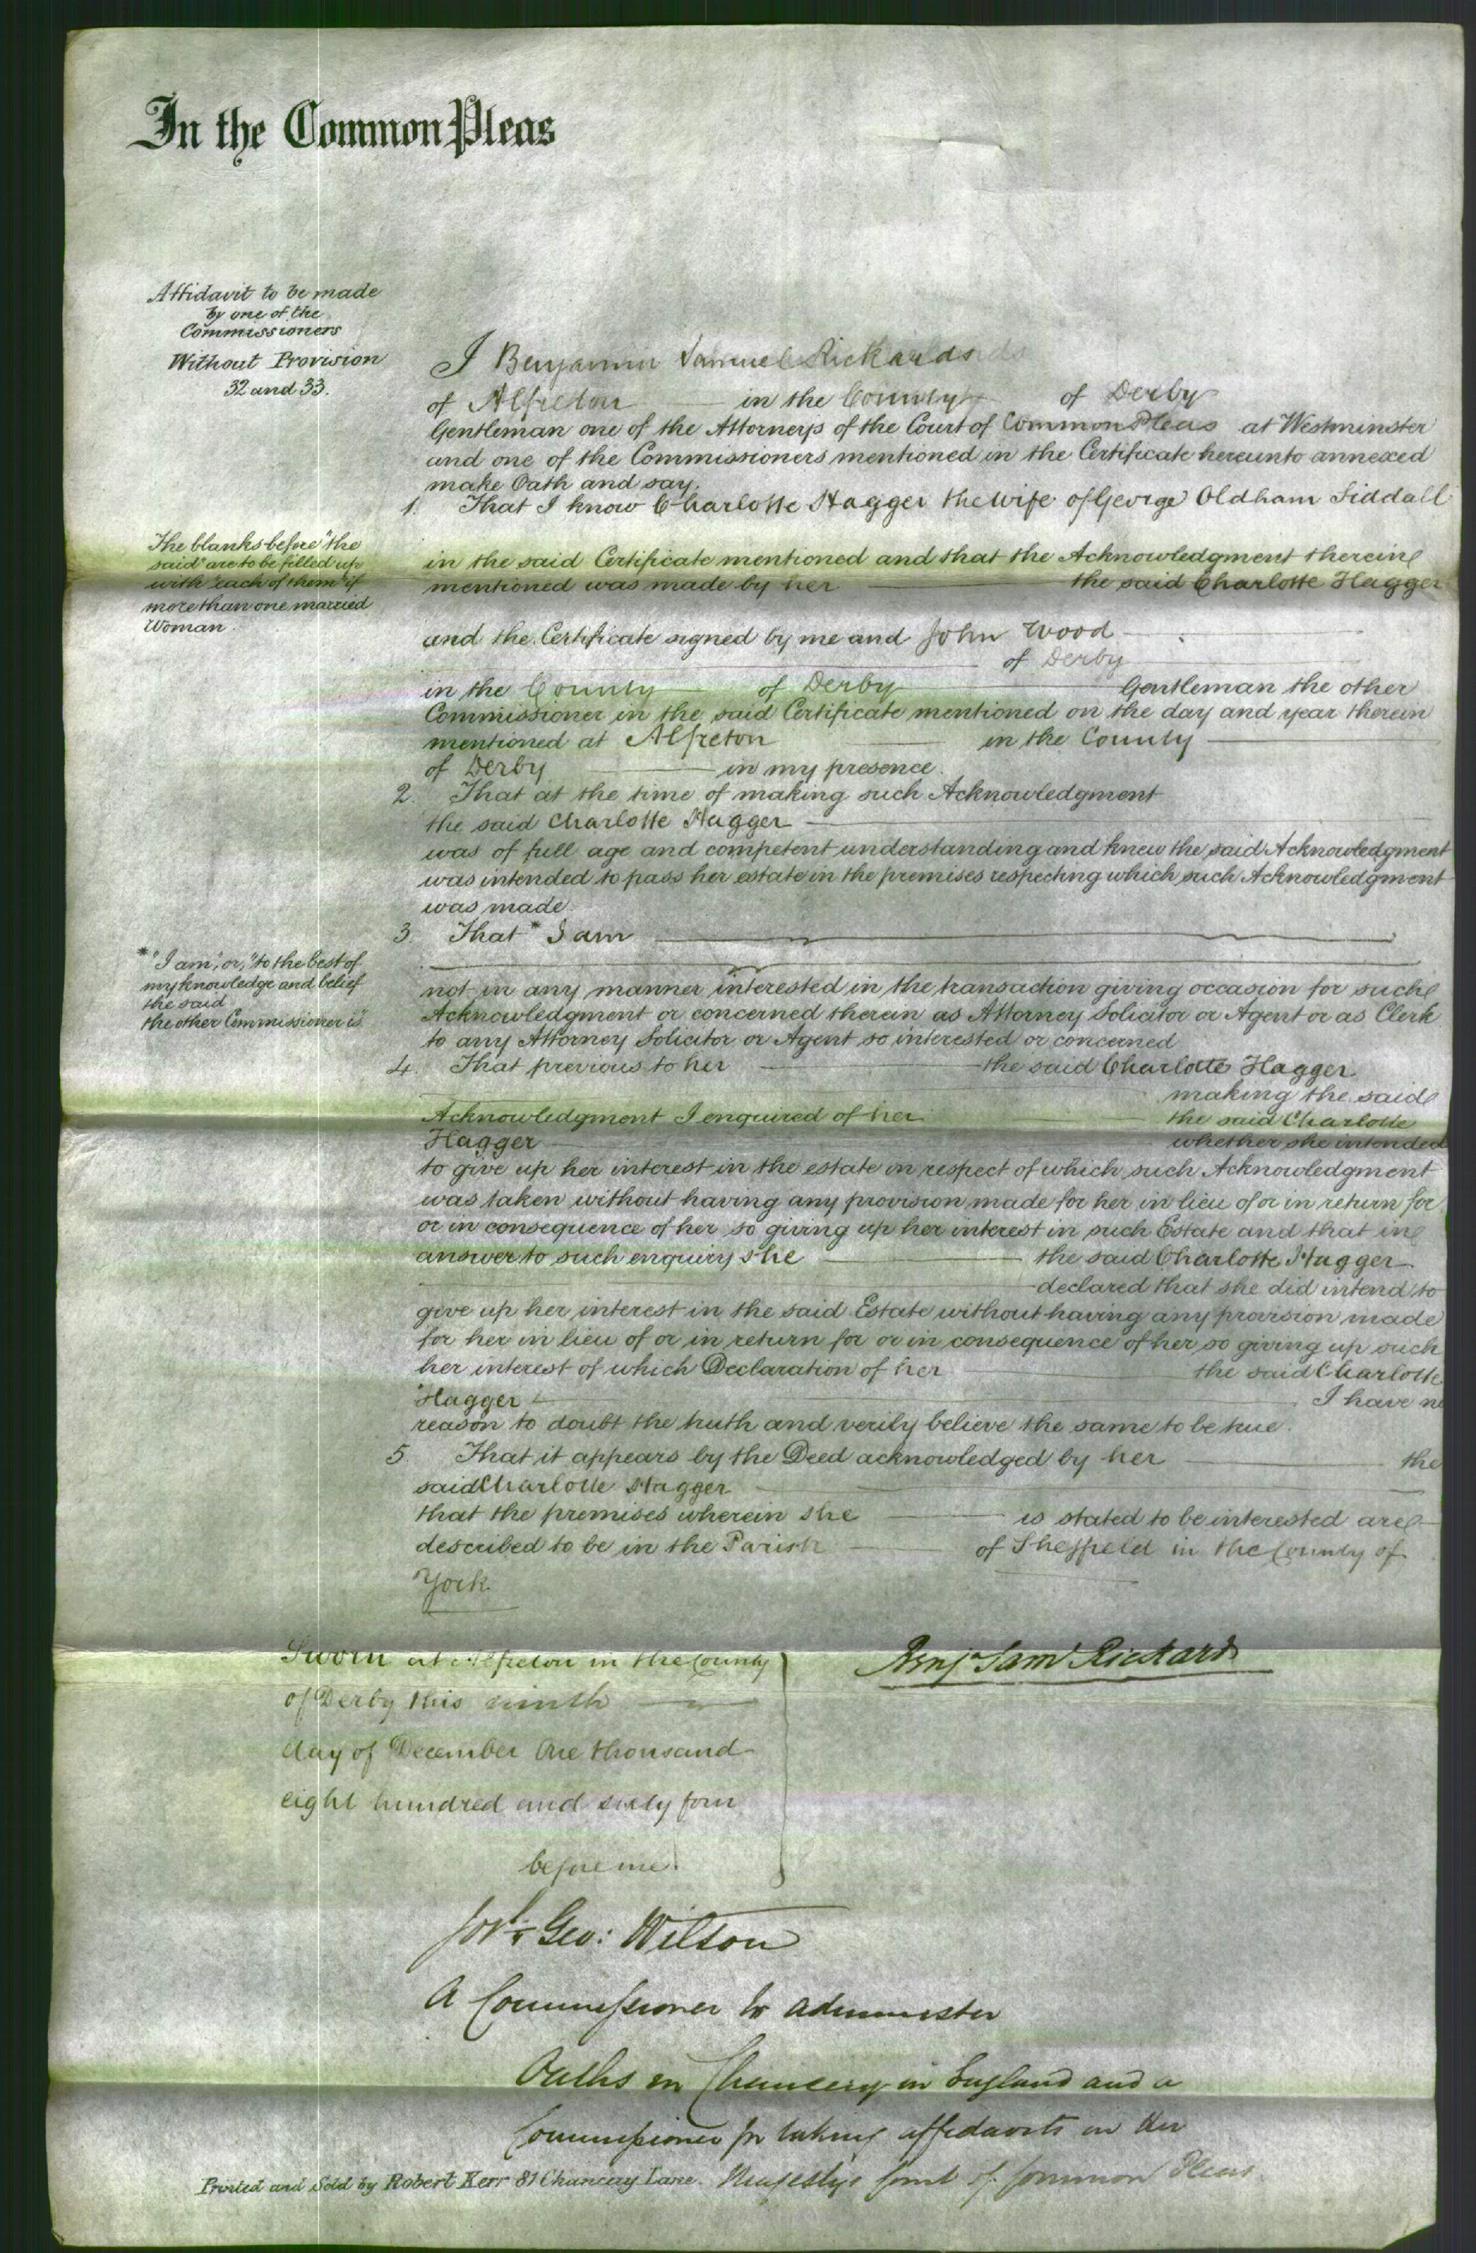 In the Common Pleas
Affidavit to be made
by one of the
Commissioners
Without Provision
32 and 33.
I Benjamin Samuel Rickards
of Alfreton in the County of Derby
Gentleman one of the Attorneys of the Court of Common Pleas at Westminster
and one of the Commissioners mentioned in the Certificate hereunto annexed
make Oath and say.
1. That I know Charlotte Hagger the wife of George Oldham Siddall
The blanks before "the
said" are to be filled up
with "each of them" if
more than one married
Woman.
in the said Certificate mentioned and that the Acknowledgment therein
mentioned was made by her the said Charlotte Hagger
and the Certificate signed by me and John Wood
of Derby
in the County of Derby Gentleman the other
Commissioner in the said Certificate mentioned on the day and year therein
mentioned at Alfreton in the County
of Derby in my presence.
2. That at the time of making such Acknowledgment
the said Charlotte Hagger
was of full age and competent understanding and knew the said Acknowledgment
was intended to pass her estate in the premises respecting which such Acknowledgment
was made.
3. That * I am
* "I am", or, "to the best of
my knowledge and belief
the said
the other Commissioner is"
not in any manner interested in the transaction giving occasion for such
Acknowledgment or concerned therein as Attorney Solicitor or Agent or as Clerk
to any Attorney Solicitor or Agent so interested or concerned
4. That previous to her the said Charlotte Hagger
making the said
Acknowledgment I enquired of her the said Charlotte
Hagger whether she intended
to give up her interest in the estate in respect of which such Acknowledgment
was taken without having any provision made for her in lieu of or in return for
or in consequence of her so giving up her interest in such Estate and that in
answer to such enquiry she the said Charlotte Hagger
declared that she did intend to
give up her interest in the said Estate without having any provision made
for her in lieu of or in return for or in consequence of her so giving up such
her interest of which Declaration of her the said Charlotte
Hagger I have no
reason to doubt the truth and verily believe the same to be true.
5. That it appears by the Deed acknowledged by her the
said Charlotte Hagger
that the premises wherein she is stated to be interested are
described to be in the Parish of Sheffield in the County of
York
Sworn at Alfreton in the County
of Derby this ninth
day of December One thousand
eight hundred and sixty four
before me.
Benj Saml Rickards
Geo: Wilson
A Commissioner to administer
Oaths in Chancery in England and a
Commissioner for taking affidavits in Her
Majesty's Court of Common Pleas.
Printed and Sold by Robert Kerr 81 Chancery Lane.